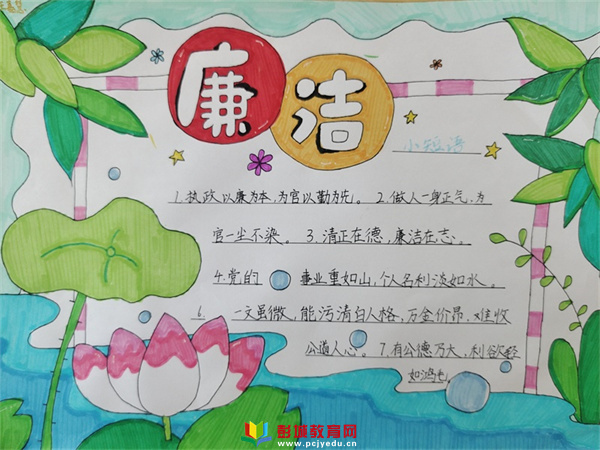 廉洁
小短语
1.执政以廉为本,为官以勤为先。2.做人一身正气,为
官一尘不染。3.清正在德,廉洁在志。
4.党的 事业重如山,个人名利淡如水。
6. 一文虽微,能污清白人格,万金价昂,难收
公道人心。7.有公德乃大,利欲轻
如鸿毛
彭城教育网
www.pcjyedu.cn